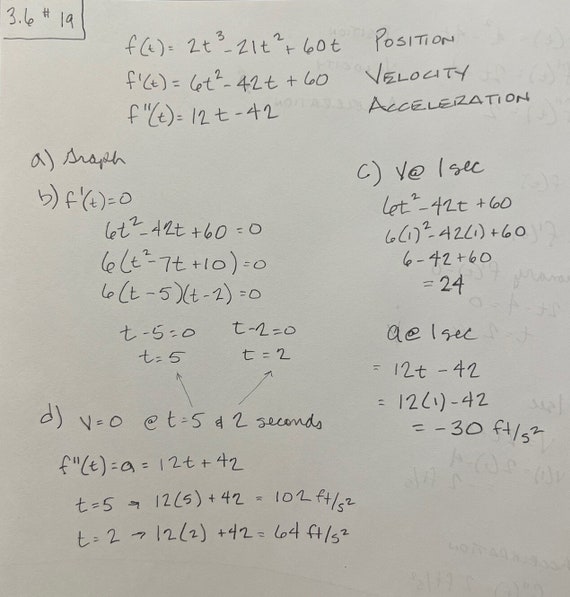 3.6 # 19
f(t) = 2t³ - 21t² + 60t POSITION
f'(t) = 6t² - 42t + 60 VELOCITY
f''(t) = 12t - 42 ACCELERATION
a) Graph
b) f'(t) = 0
6t² - 42t + 60 = 0
6(t² - 7t + 10) = 0
6(t - 5)(t - 2) = 0
t - 5 = 0 t - 2 = 0
t = 5 t = 2
c) V@ 1 sec
6t² - 42t + 60
6(1)² - 42(1) + 60
6 - 42 + 60
= 24
a@ 1 sec
= 12t - 42
= 12(1) - 42
= -30 ft/s²
d) V = 0 @ t = 5 & 2 seconds
f''(t) = a = 12t + 42
t = 5 → 12(5) + 42 = 102 ft/s²
t = 2 → 12(2) + 42 = 64 ft/s²